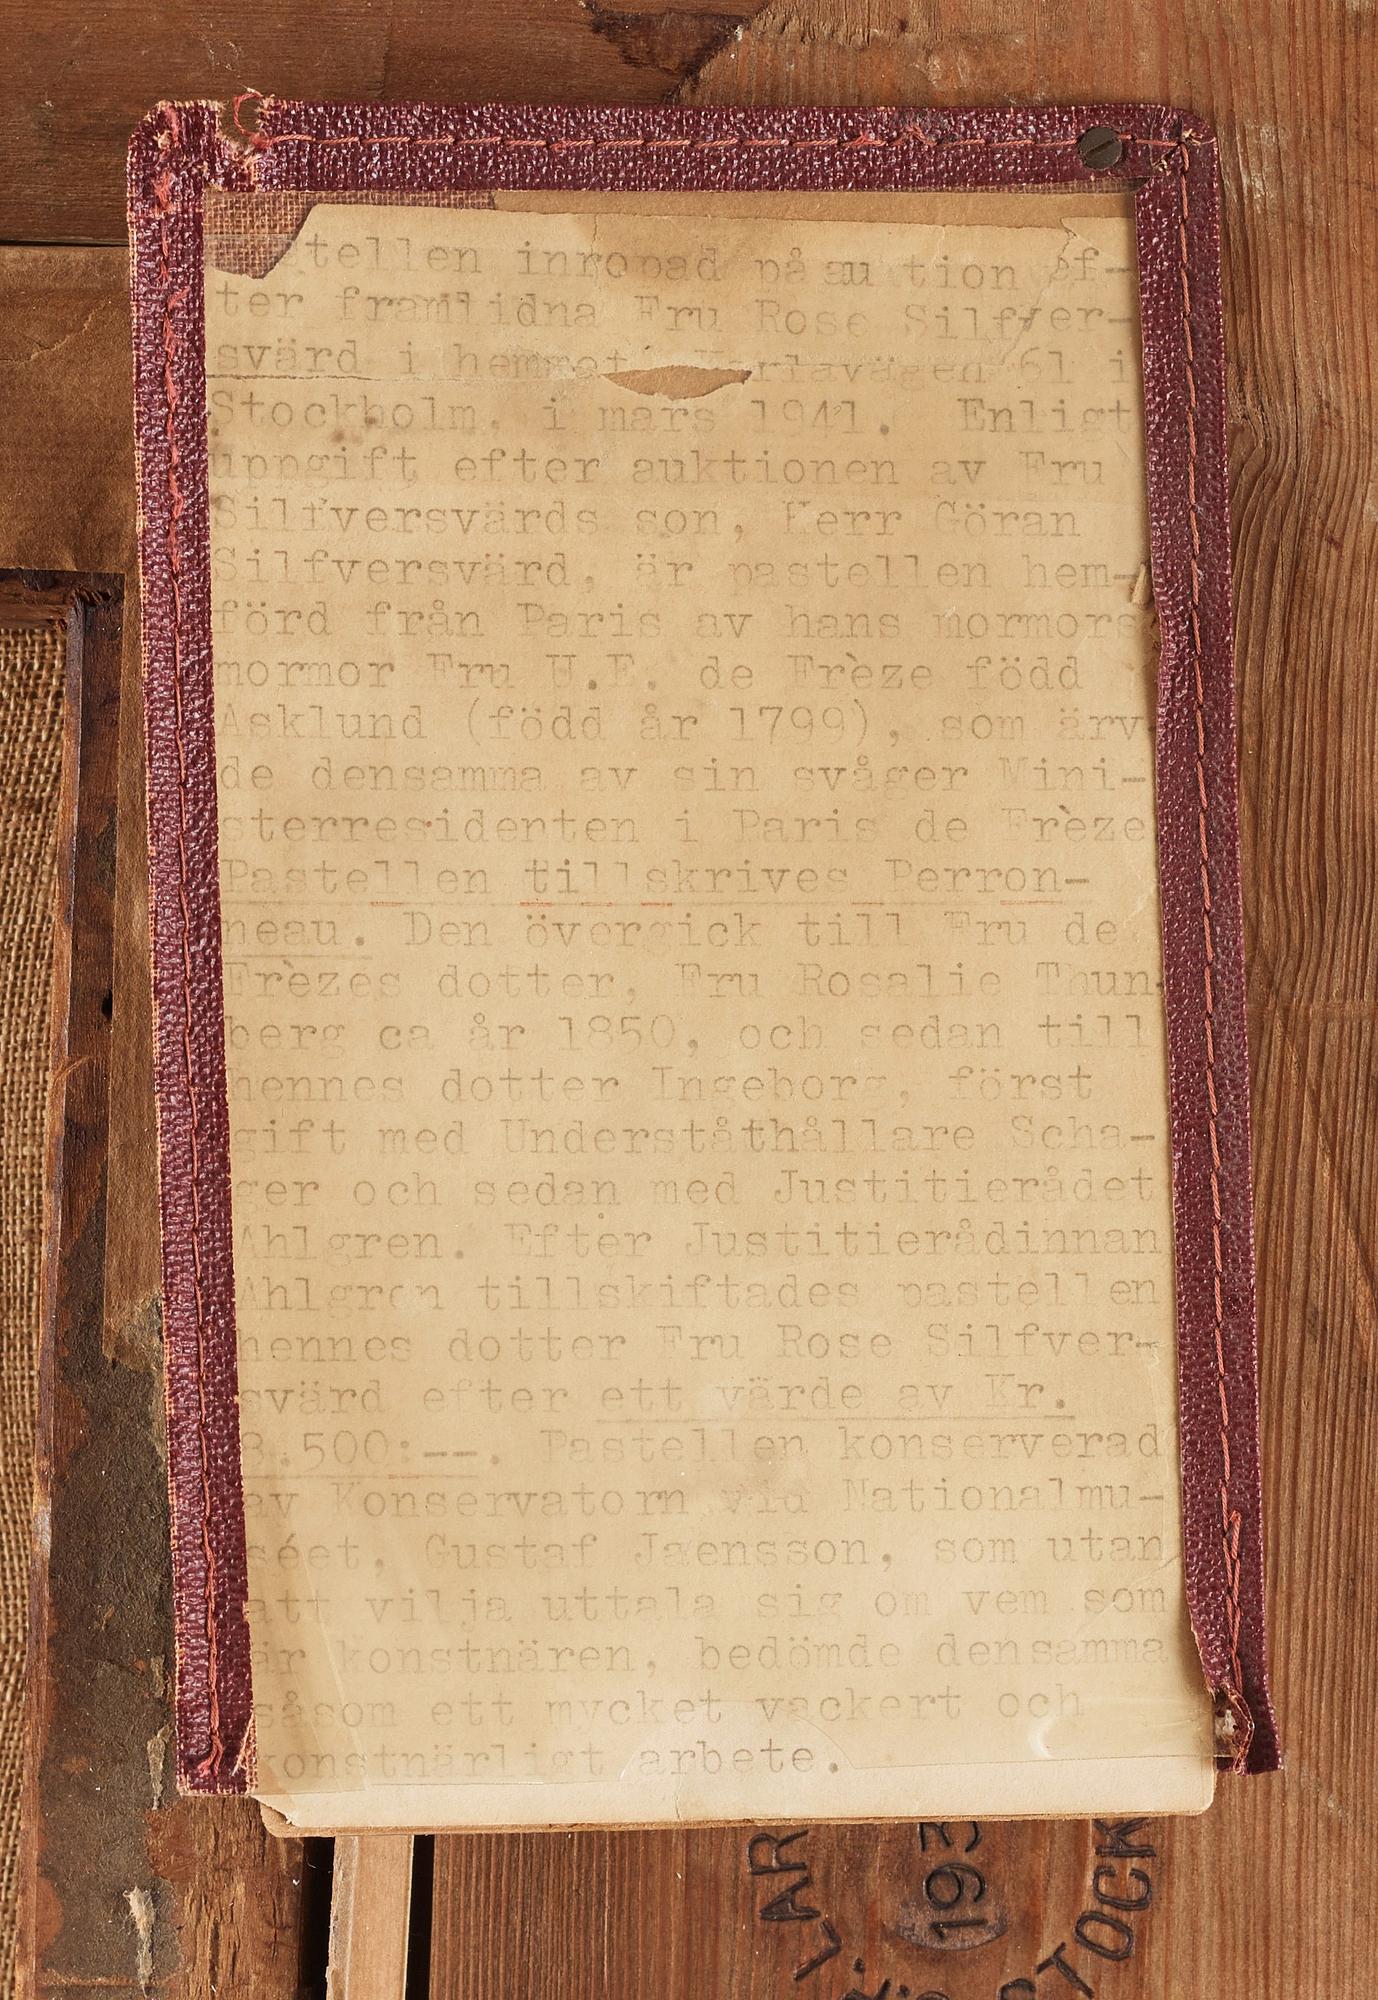 tellen inropad på au tion ef-
ter framlidna Fru Rose Silfver-
svärd i hemmet, Karlavägen 61 i
Stockholm, i mars 1941. Enligt
uppgift efter auktionen av Fru
Silfversvärds son, Herr Göran
Silfversvärd, är pastellen hem-
förd från Paris av hans mormors
mormor Fru U.E. de Frèze född
Asklund (född år 1799), som ärv-
de densamma av sin svåger Mini-
sterresidenten i Paris de Frèze
Pastellen tillskrives Perron-
neau. Den övergick till Fru de
Frèzes dotter, Fru Rosalie Thun-
berg ca år 1850, och sedan till
hennes dotter Ingeborg, först
gift med Underståthållare Scha-
ger och sedan med Justitierådet
Ahlgren. Efter Justitierådinnan
Ahlgren tillskiftades pastellen
hennes dotter Fru Rose Silfver-
svärd efter ett värde av Kr.
3.500:--. Pastellen konserverad
av Konservatorn vid Nationalmu-
séet, Gustaf Jaensson, som utan
att vilja uttala sig om vem som
är konstnären, bedömde densamma
såsom ett mycket vackert och
konstnärligt arbete.
193